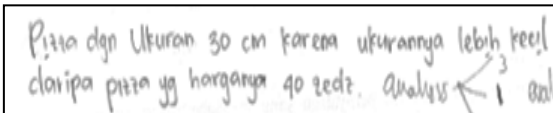 Pizza dgn Ukuran 30 cm karena ukurannya lebih kecil
daripa pizza yg harganya 40 zedz. analysis 3 1